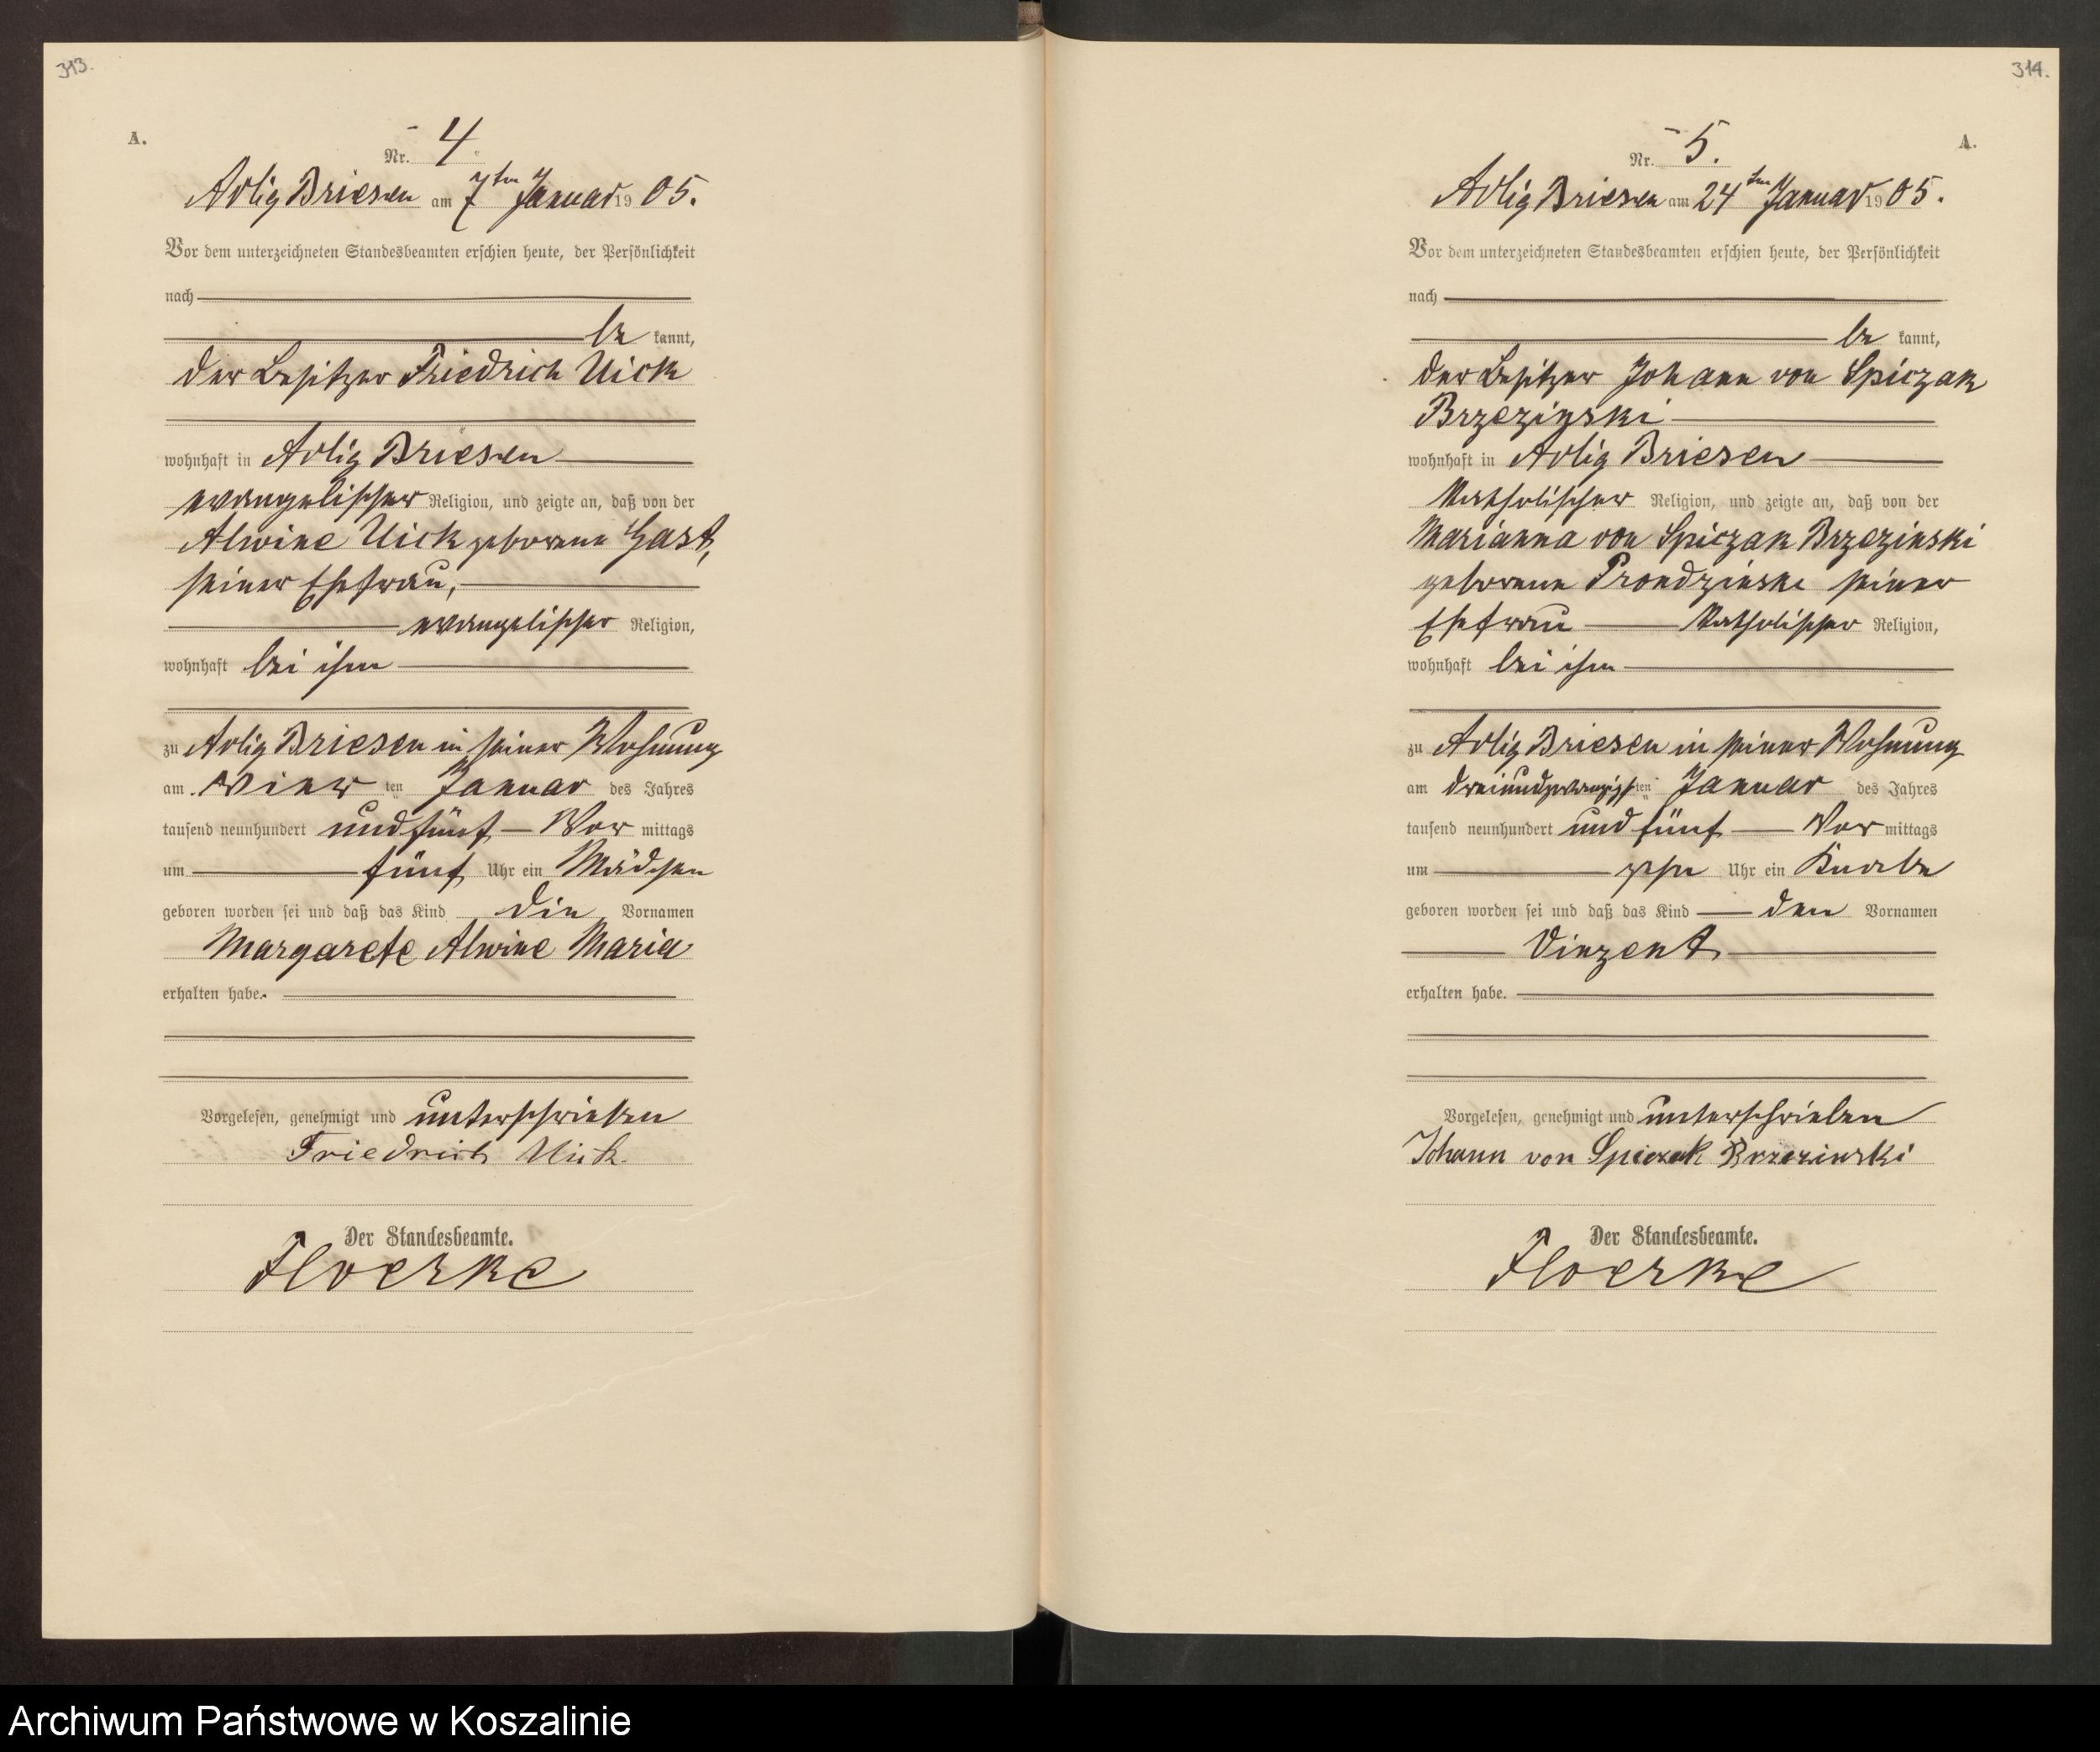 313.
A.
Nr. 4
Adlig Briesen am 7ten Januar 1905.
Vor dem unterzeichneten Standesbeamten erschien heute, der Persönlichkeit
nach
be kannt,
der Besitzer Friedrich Uick
wohnhaft in Adlig Briesen
evangelischer Religion, und zeigte an, daß von der
Alwine Uick geborene Gast,
seiner Ehefrau,
evangelischer Religion,
wohnhaft bei ihm
zu Adlig Briesen in seiner Wohnung
am vier ten Januar des Jahres
tausend neunhundert und fünf Vor mittags
um fünf Uhr ein Mädchen
geboren worden sei und daß das Kind die Vornamen
Margarete Alwine Maria
erhalten habe.
Vorgelesen, genehmigt und unterschrieben
Friedrich Uick.
Der Standesbeamte.
Floerke
314.
A.
Nr. 5.
Adlig Briesen am 24ten Januar 1905.
Vor dem unterzeichneten Standesbeamten erschien heute, der Persönlichkeit
nach
be kannt,
der Besitzer Johann von Spiczak
Brzezinski
wohnhaft in Adlig Briesen
katholischer Religion, und zeigte an, daß von der
Marianna von Spiczak Brzezinski
geborene Prondzinska seiner
Ehefrau katholischer Religion,
wohnhaft bei ihm
zu Adlig Briesen in seiner Wohnung
am dreiundzwanzigsten Januar des Jahres
tausend neunhundert und fünf Vor mittags
um zehn Uhr ein Knabe
geboren worden sei und daß das Kind den Vornamen
Vinzent
erhalten habe.
Vorgelesen, genehmigt und unterschrieben
Johann von Spiczak Brzezinski
Der Standesbeamte.
Floerke
Archiwum Państwowe w Koszalinie